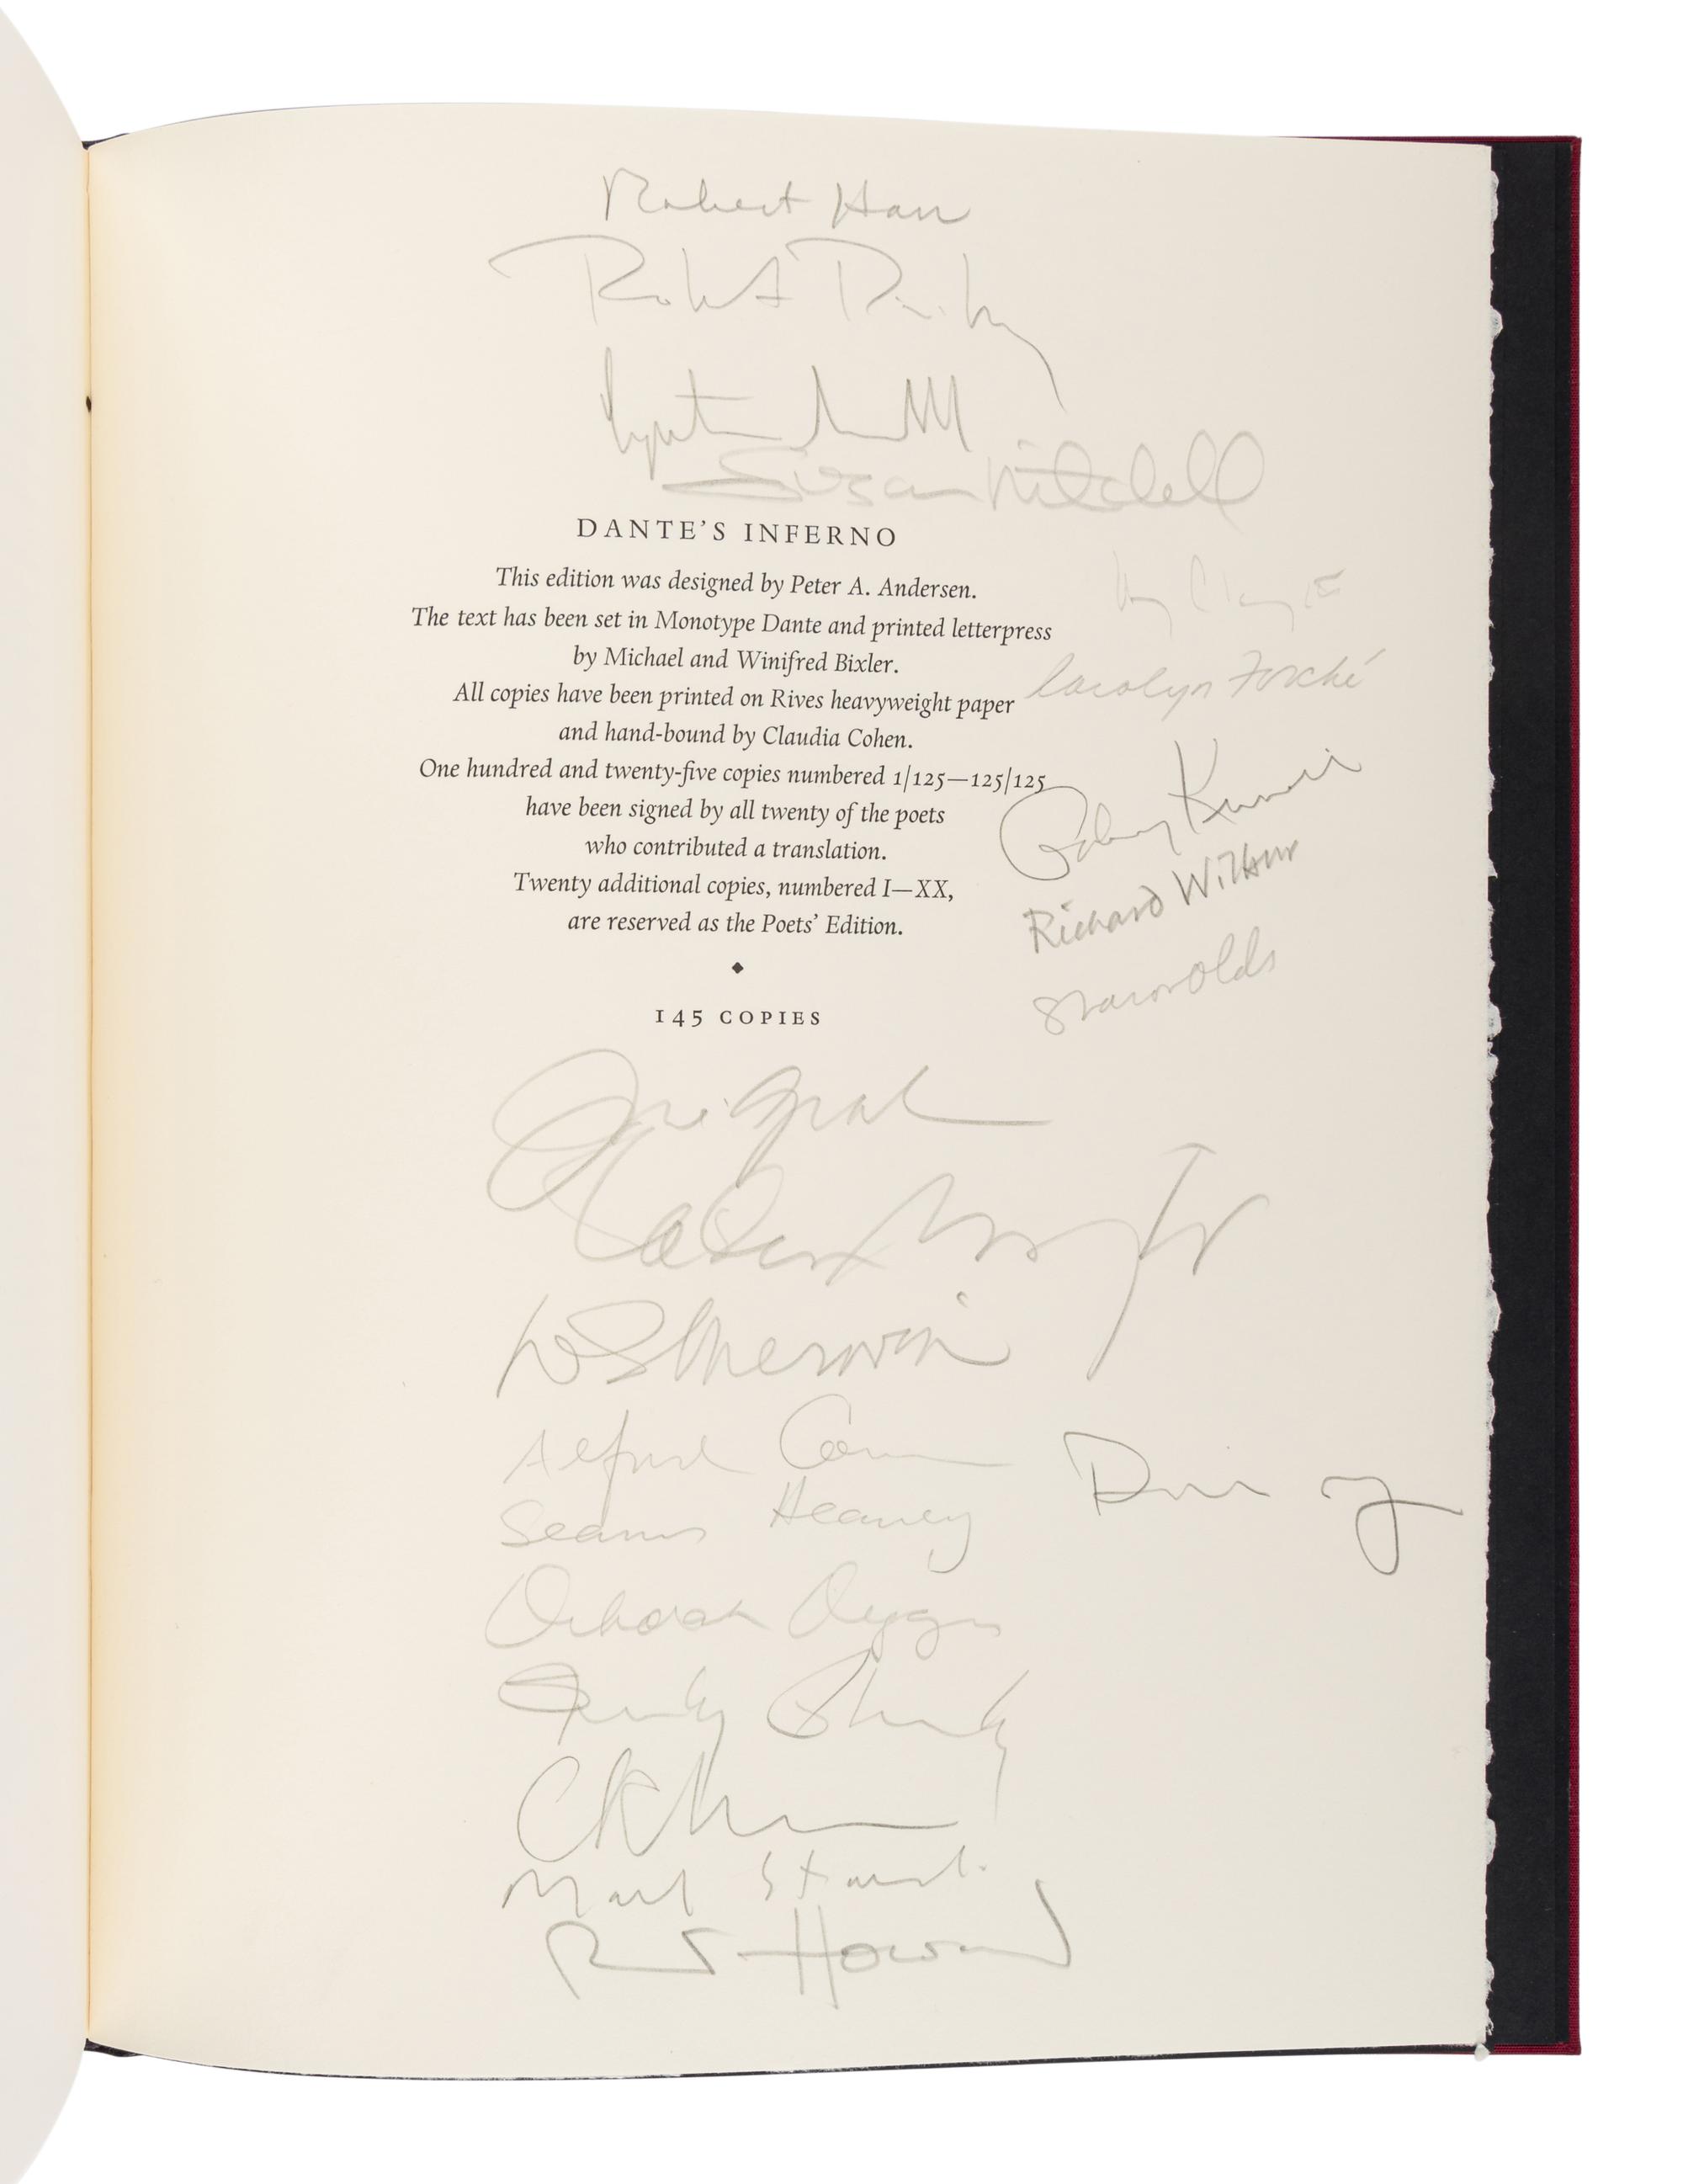 Robert Hass
Robert Pinsky
Cynthia Macdonald
Susan Mitchell
DANTE'S INFERNO
This edition was designed by Peter A. Andersen.
The text has been set in Monotype Dante and printed letterpress
by Michael and Winifred Bixler.
Carolyn Forché
All copies have been printed on Rives heavyweight paper
and hand-bound by Claudia Cohen.
One hundred and twenty-five copies numbered 1/125—125/125
have been signed by all twenty of the poets
who contributed a translation.
Richard Wilbur
Twenty additional copies, numbered I—XX,
are reserved as the Poets' Edition.
Sharon Olds
◆
145 COPIES
Jorie Graham
Galway Kinnell
W S Merwin
Alfred Corn
Seamus Heaney
Deborah Digges
Stanley Plumly
CK Williams
Mark Strand
Richard Howard